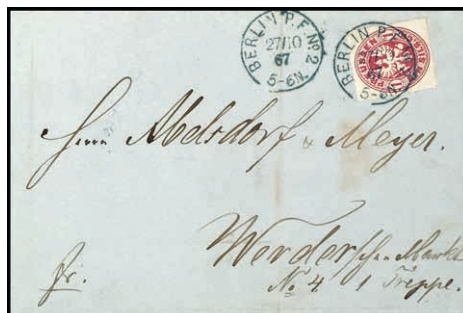 BERLIN P.E. No 2
27 10
67
5-6N.
BERLIN P.E.
PREUSSEN
5-6N.
Herrn Abelsdorf & Meyer.
Werderschen Markt
No 4 1 Treppe.
fr.